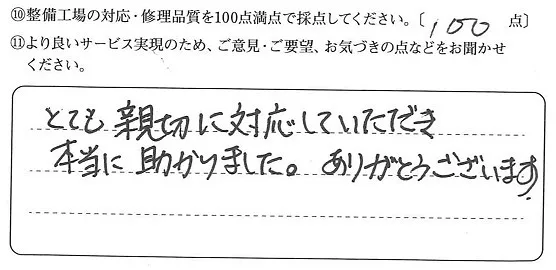 ⑩整備工場の対応・修理品質を100点満点で採点してください。〔 100 点〕
⑪より良いサービス実現のため、ご意見・ご要望、お気づきの点などをお聞かせ
ください。
とても親切に対応していただき
本当に助かりました。ありがとうございます